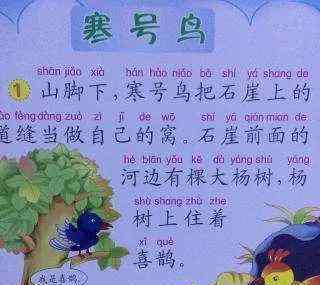 寒号鸟
shān jiǎo xià hán hào niǎo bǎ shí yá shang de
1 山脚下,寒号鸟把石崖上的
fèng dàng zuò zì jǐ de wō shí yá qián mian de
道缝当做自己的窝。石崖前面的
hé biān yǒu kē dà yáng shù yáng
河边有棵大杨树,杨
shù shang zhù zhe
树上住着
xǐ què
喜鹊。
我是喜鹊。